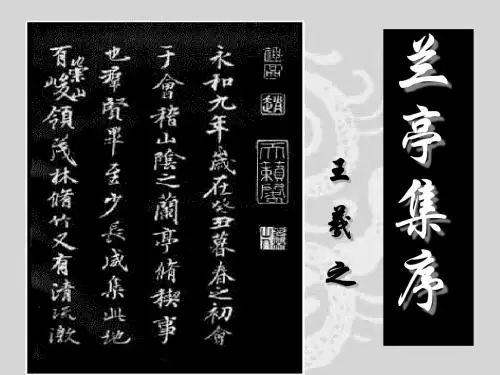 兰亭集序
王羲之
永和九年歲在癸丑暮春之初會
于會稽山陰之蘭亭脩稧事
也羣賢畢至少長咸集此地
有崇山峻領茂林脩竹又有清流激
天籟閣
趙